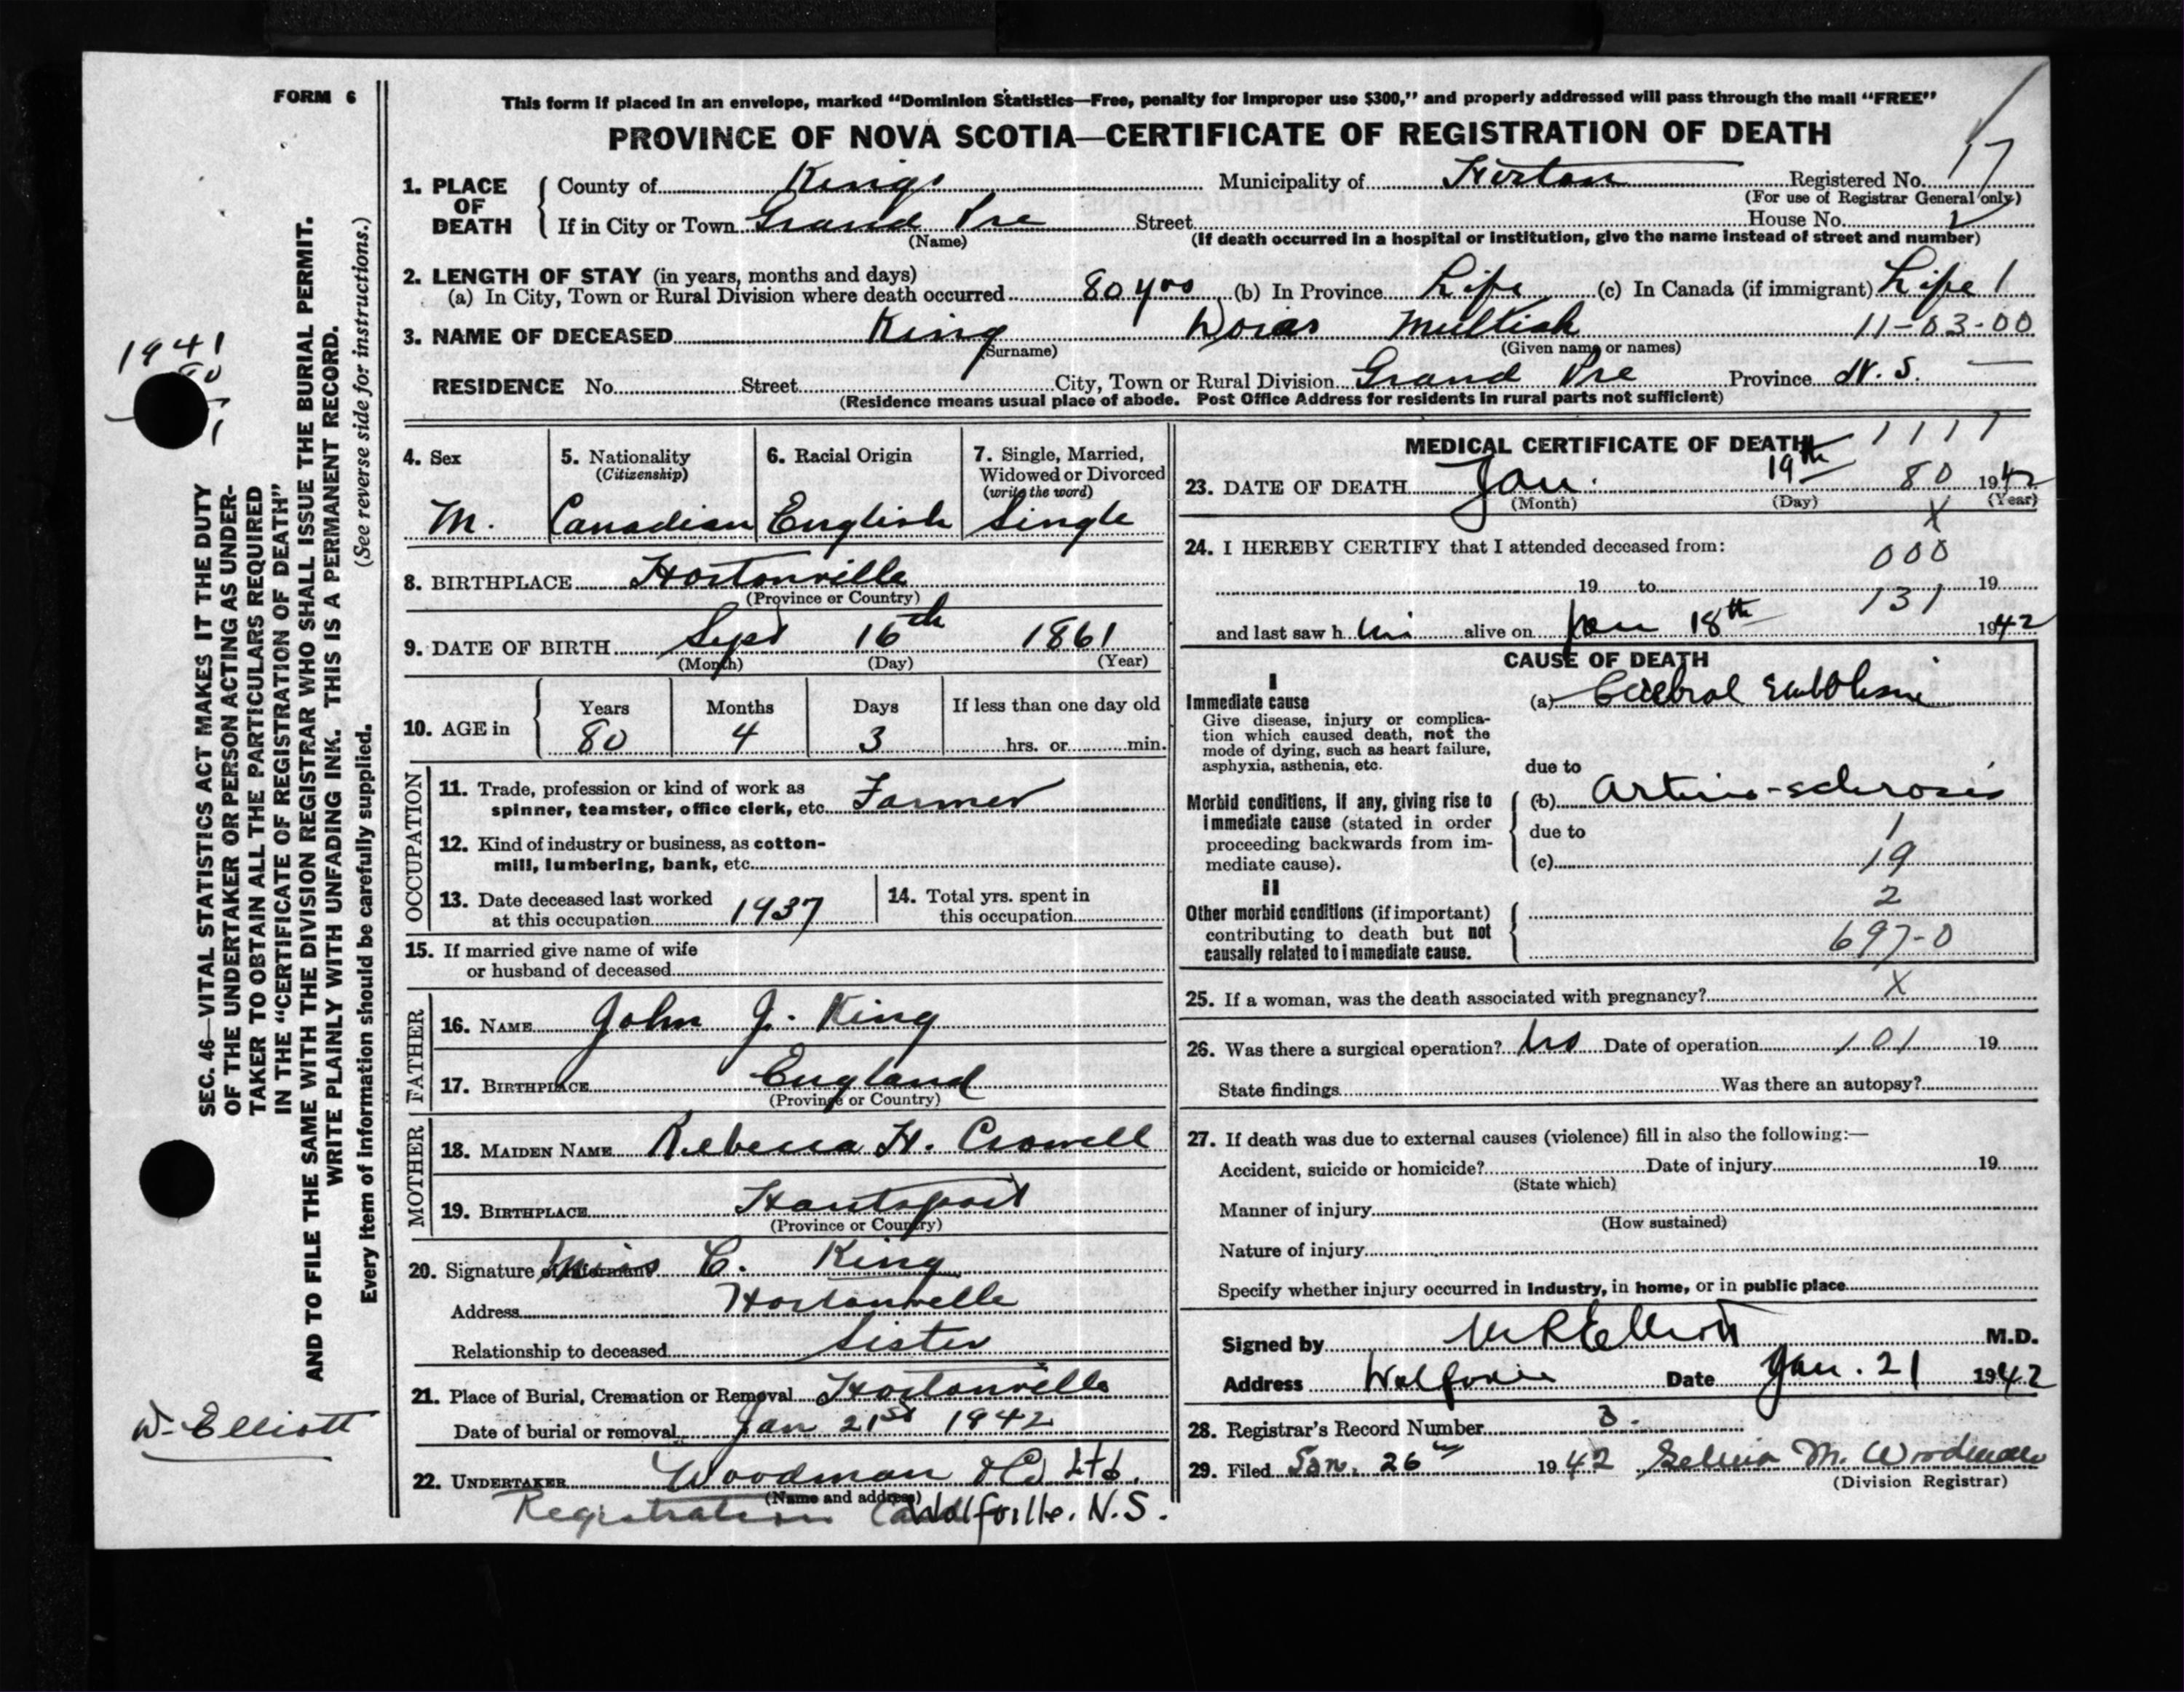 FORM 6
This form if placed in an envelope, marked “Dominion Statistics—Free, penalty for improper use $300,” and properly addressed will pass through the mail “FREE”
PROVINCE OF NOVA SCOTIA—CERTIFICATE OF REGISTRATION OF DEATH
1. PLACE OF DEATH County of Kings Municipality of Horton Registered No. 17
(For use of Registrar General only)
If in City or Town Grand Pre Street House No.
(Name) (If death occurred in a hospital or institution, give the name instead of street and number)
2. LENGTH OF STAY (in years, months and days)
(a) In City, Town or Rural Division where death occurred 80 yrs (b) In Province Life (c) In Canada (if immigrant) Life 1
3. NAME OF DECEASED King Mulliah 11-03-00
(Surname) (Given name or names)
RESIDENCE No. Street City, Town or Rural Division Grand Pre Province N.S.
(Residence means usual place of abode. Post Office Address for residents in rural parts not sufficient)
4. Sex 5. Nationality (Citizenship) 6. Racial Origin 7. Single, Married, Widowed or Divorced (write the word)
M. Canadian English Single
8. BIRTHPLACE Hortonville
(Province or Country)
9. DATE OF BIRTH Sept 16th 1861
(Month) (Day) (Year)
10. AGE in Years Months Days If less than one day old
80 4 3 hrs. or min.
OCCUPATION
11. Trade, profession or kind of work as
spinner, teamster, office clerk, etc. Farmer
12. Kind of industry or business, as cotton-
mill, lumbering, bank, etc.
13. Date deceased last worked
at this occupation 1937
14. Total yrs. spent in
this occupation
15. If married give name of wife
or husband of deceased
FATHER
16. NAME John J. King
17. BIRTHPLACE England
(Province or Country)
MOTHER
18. MAIDEN NAME Rebecca H. Crowell
19. BIRTHPLACE Hantsport
(Province or Country)
20. Signature of Informant Miss C. King
Address Hortonville
Relationship to deceased Sister
21. Place of Burial, Cremation or Removal Hortonville
Date of burial or removal Jan 21st 1942
22. UNDERTAKER Woodman & Co Ltd.
(Name and address)
Registration Wolfville. N.S.
MEDICAL CERTIFICATE OF DEATH 1111
23. DATE OF DEATH Jan. 19th 80 1942
(Month) (Day) (Year)
X
24. I HEREBY CERTIFY that I attended deceased from:
000
19 to 19
131
and last saw h im alive on Jan 18th 1942
CAUSE OF DEATH
I
Immediate cause
Give disease, injury or complica-
tion which caused death, not the
mode of dying, such as heart failure,
asphyxia, asthenia, etc.
(a) Cerebral Embolism
due to
Morbid conditions, if any, giving rise to
immediate cause (stated in order
proceeding backwards from im-
mediate cause).
(b) Arterio-sclerosis
due to 1
(c) 19
II
Other morbid conditions (if important)
contributing to death but not
causally related to immediate cause.
2
697-0
25. If a woman, was the death associated with pregnancy? X
26. Was there a surgical operation? No Date of operation 101 19
State findings Was there an autopsy?
27. If death was due to external causes (violence) fill in also the following:—
Accident, suicide or homicide? Date of injury 19
(State which)
Manner of injury
(How sustained)
Nature of injury
Specify whether injury occurred in industry, in home, or in public place
Signed by Elliott M.D.
Address Wolfville Date Jan. 21 1942
28. Registrar's Record Number 3.
29. Filed Jan. 26 1942 M. Woodman
(Division Registrar)
1941
SEC. 46—VITAL STATISTICS ACT MAKES IT THE DUTY
OF THE UNDERTAKER OR PERSON ACTING AS UNDER-
TAKER TO OBTAIN ALL THE PARTICULARS REQUIRED
IN THE “CERTIFICATE OF REGISTRATION OF DEATH”
AND TO FILE THE SAME WITH THE DIVISION REGISTRAR WHO SHALL ISSUE THE BURIAL PERMIT.
WRITE PLAINLY WITH UNFADING INK. THIS IS A PERMANENT RECORD.
Every item of information should be carefully supplied. (See reverse side for instructions.)
W. Elliott